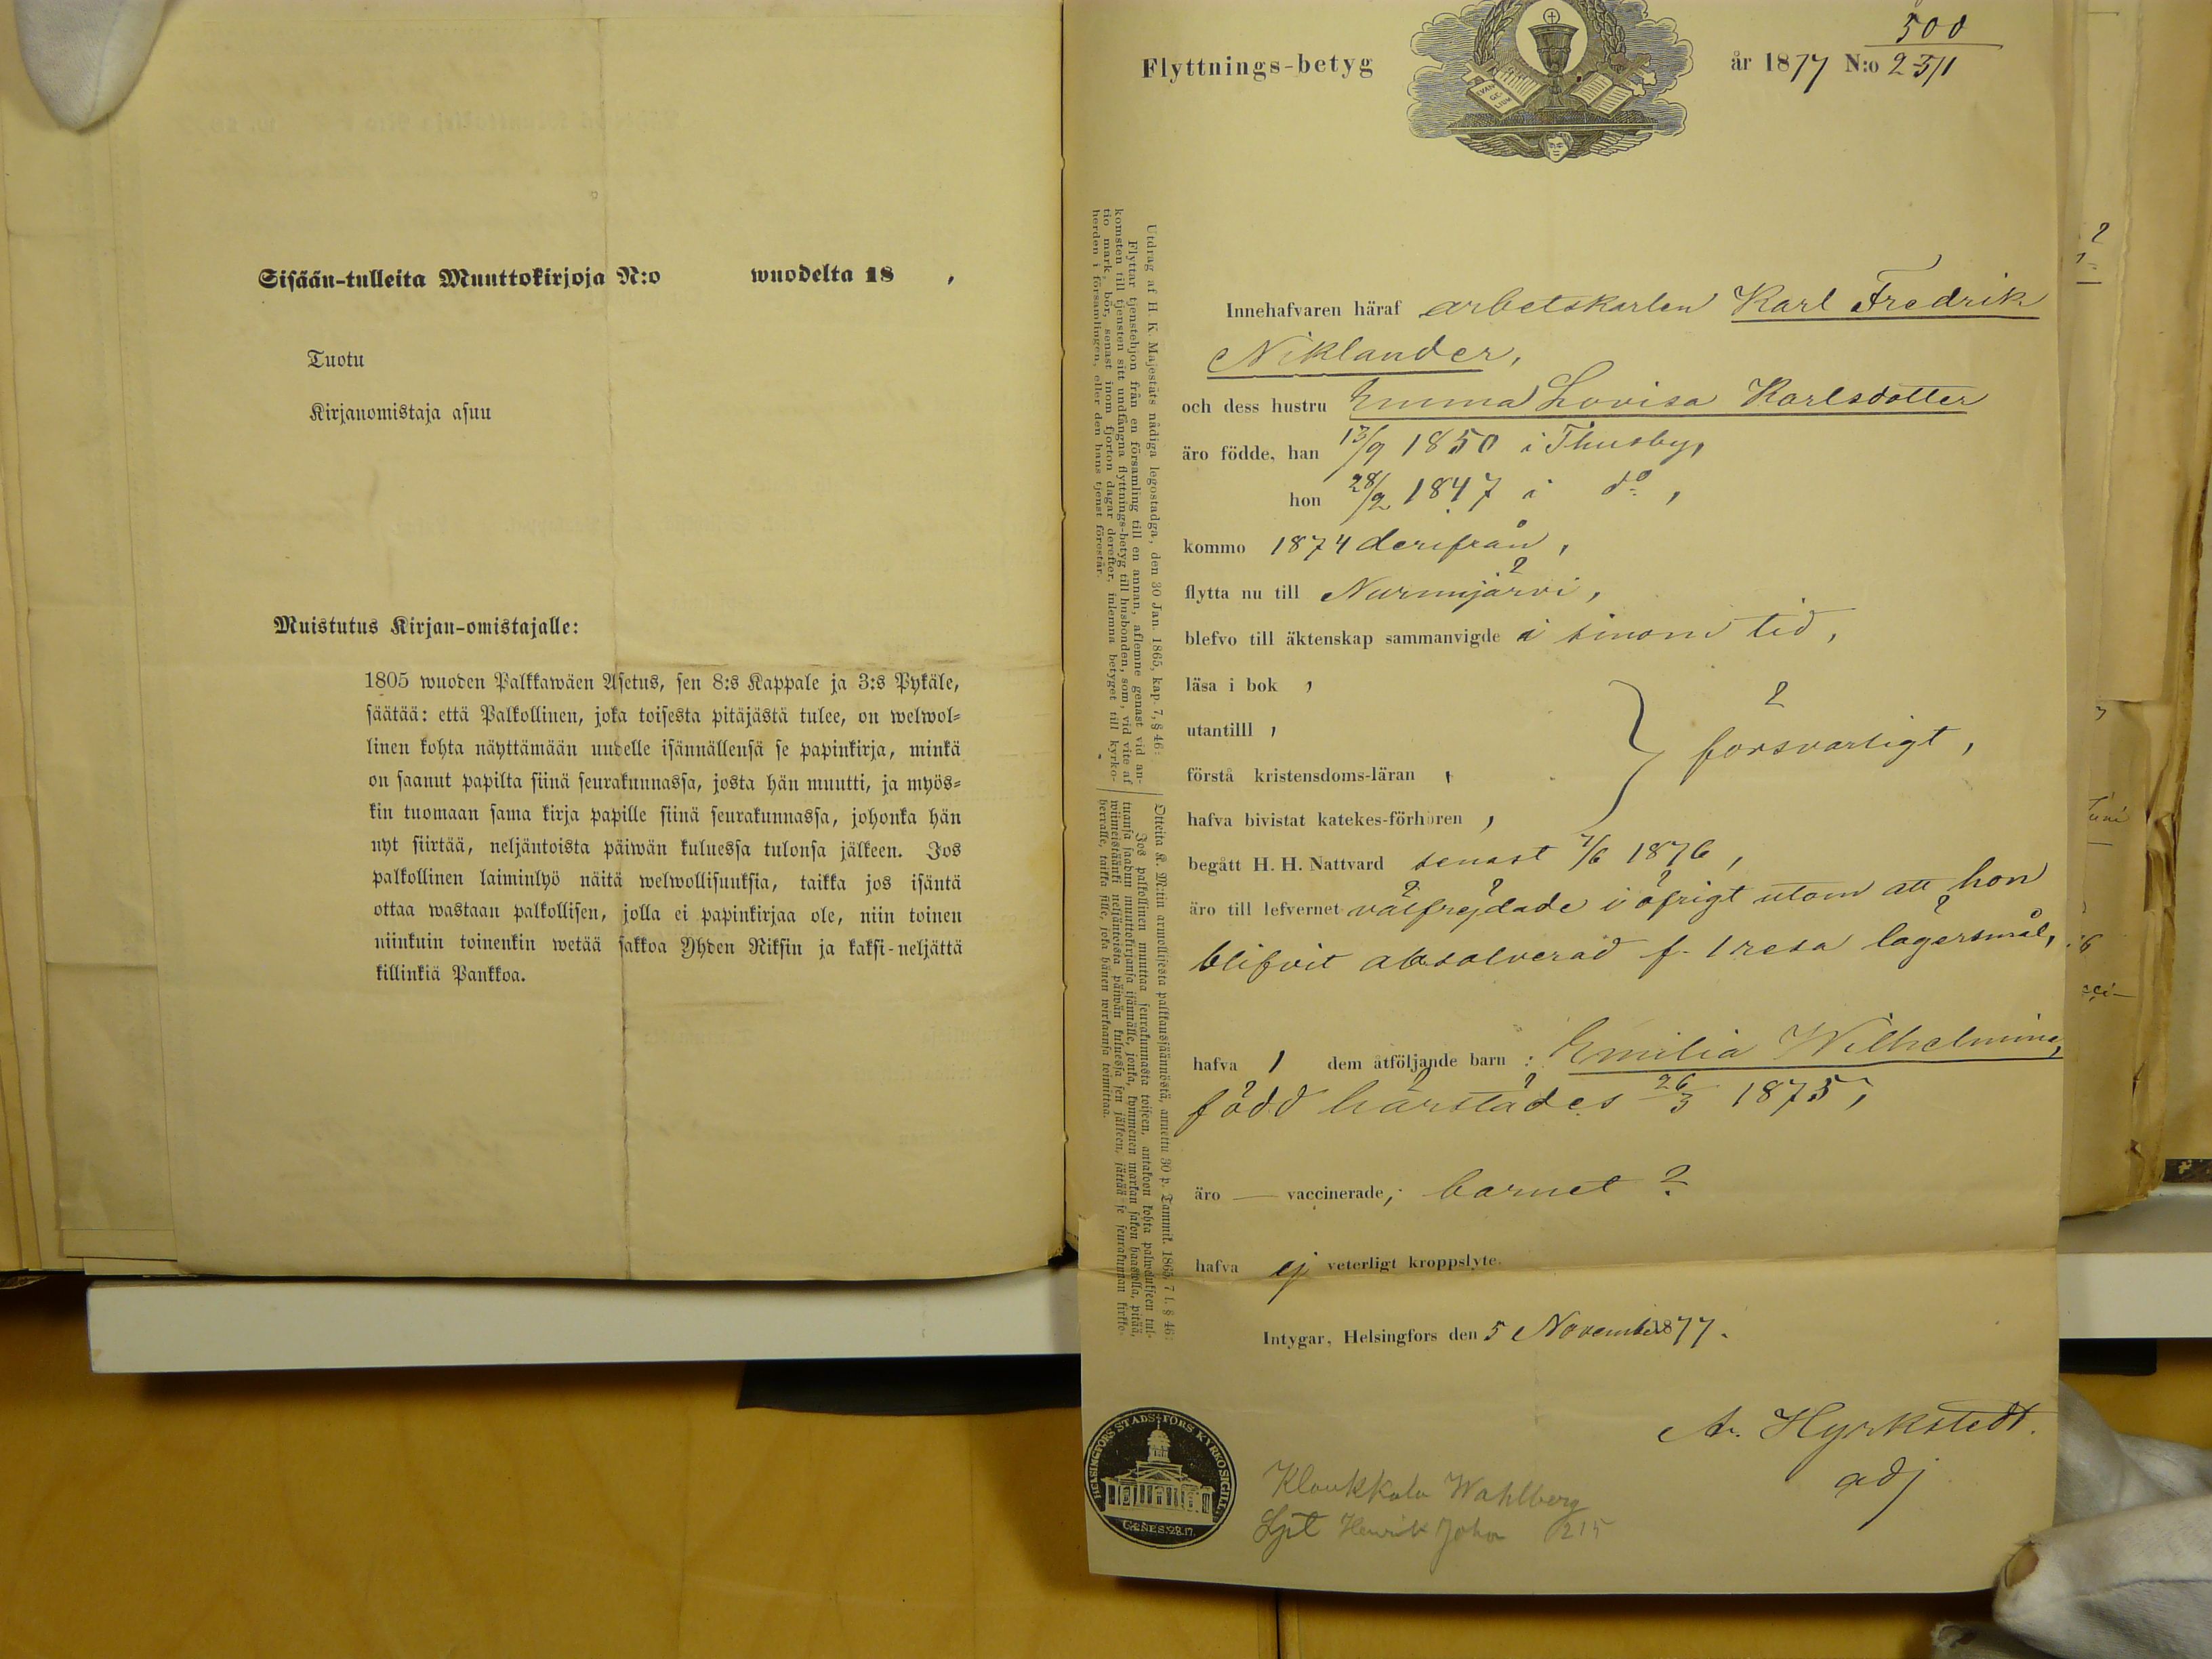 Sisään-tulleita Muuttokirjoja N:o wuodelta 18 ,
Tuotu
Kirjanomistaja asuu
Muistutus Kirjan-omistajalle:
1805 wuoden Palkkawäen Asetus, sen 8:s Kappale ja 3:s Pykäle,
säätää: että Palkollinen, joka toisesta pitäjästä tulee, on welwol-
linen kohta näyttämään uudelle isännällensä se papinkirja, minkä
on saanut papilta siinä seurakunnassa, josta hän muutti, ja myös-
kin tuomaan sama kirja papille siinä seurakunnassa, johonka hän
nyt siirtää, neljäntoista päiwän kuluessa tulonsa jälkeen. Jos
palkollinen laiminlyö näitä welwollisuuksia, taikka jos isäntä
ottaa wastaan palkollisen, jolla ei papinkirjaa ole, niin toinen
niinkuin toinenkin wetää sakkoa Yhden Riksin ja kaksi-neljättä
killinkiä Pankkoa.
500
Flyttnings-betyg år 1877 N:o 2311
EVAN
GE-
LIUM
Utdrag af H. K. Majestäts nådiga legostadga, den 30 Jan. 1865, kap. 7, § 46:
Flyttar tjenstehjon från en församling till en annan, aflemne genast vid an-
komsten till tjensten sitt undfångna flyttnings-betyg till husbonden, som, vid vite af
tio mark, bör, senast inom fjorton dagar derefter, inlemna betyget till kyrko-
herden i församlingen, eller den hans tjenst förestår.
Otteita K. M:tin armollisesta palkkaussäännöstä, annettu 30 p. Tammik. 1865, 7 l. § 46:
Jos palkollinen muuttaa seurakunnasta toiseen, antakoon kohta palwelukseen tul-
tuansa saadun muuttokirjansa isännälle, jonka, kymmenen markan sakon haastolla, pitää,
wiimeistäänki neljäntoista päiwän kuluessa sen jälkeen, jättää se seurakunnan kirkko-
herralle, taikka sille, joka hänen wirkaansa toimittaa.
Innehafvaren häraf arbetskarlen Karl Fredrik
Niklander,
och dess hustru Emma Lovisa Karlsdotter
äro födde, han 13/9 1850 i Thusby,
hon 28/2 1847 i do,
kommo 1874 derifrån,
flytta nu till Nurmijärvi,
blefvo till äktenskap sammanvigde i sinom tid,
läsa i bok ,
utantilll ,
förstå kristensdoms-läran , försvarligt,
hafva bivistat katekes-förhören ,
begått H. H. Nattvard senast 7/6 1876,
äro till lefvernet välfrejdade i öfrigt utom att hon
blifvit absolverad f. 1 resa lägersmål,
hafva 1 dem åtföljande barn : Emilia Wilhelmina,
född härstädes 26/3 1875,
äro — vaccinerade, barnet ?
hafva ej veterligt kroppslyte.
Intygar, Helsingfors den 5 November 1877.
A. Hyrkstedt.
adj
HELSINGFORS STADS-FÖRS KYRKOSIGILL.
GENES:28.17.
Klaukkala Wahlberg
Spt Henrik Johan 215